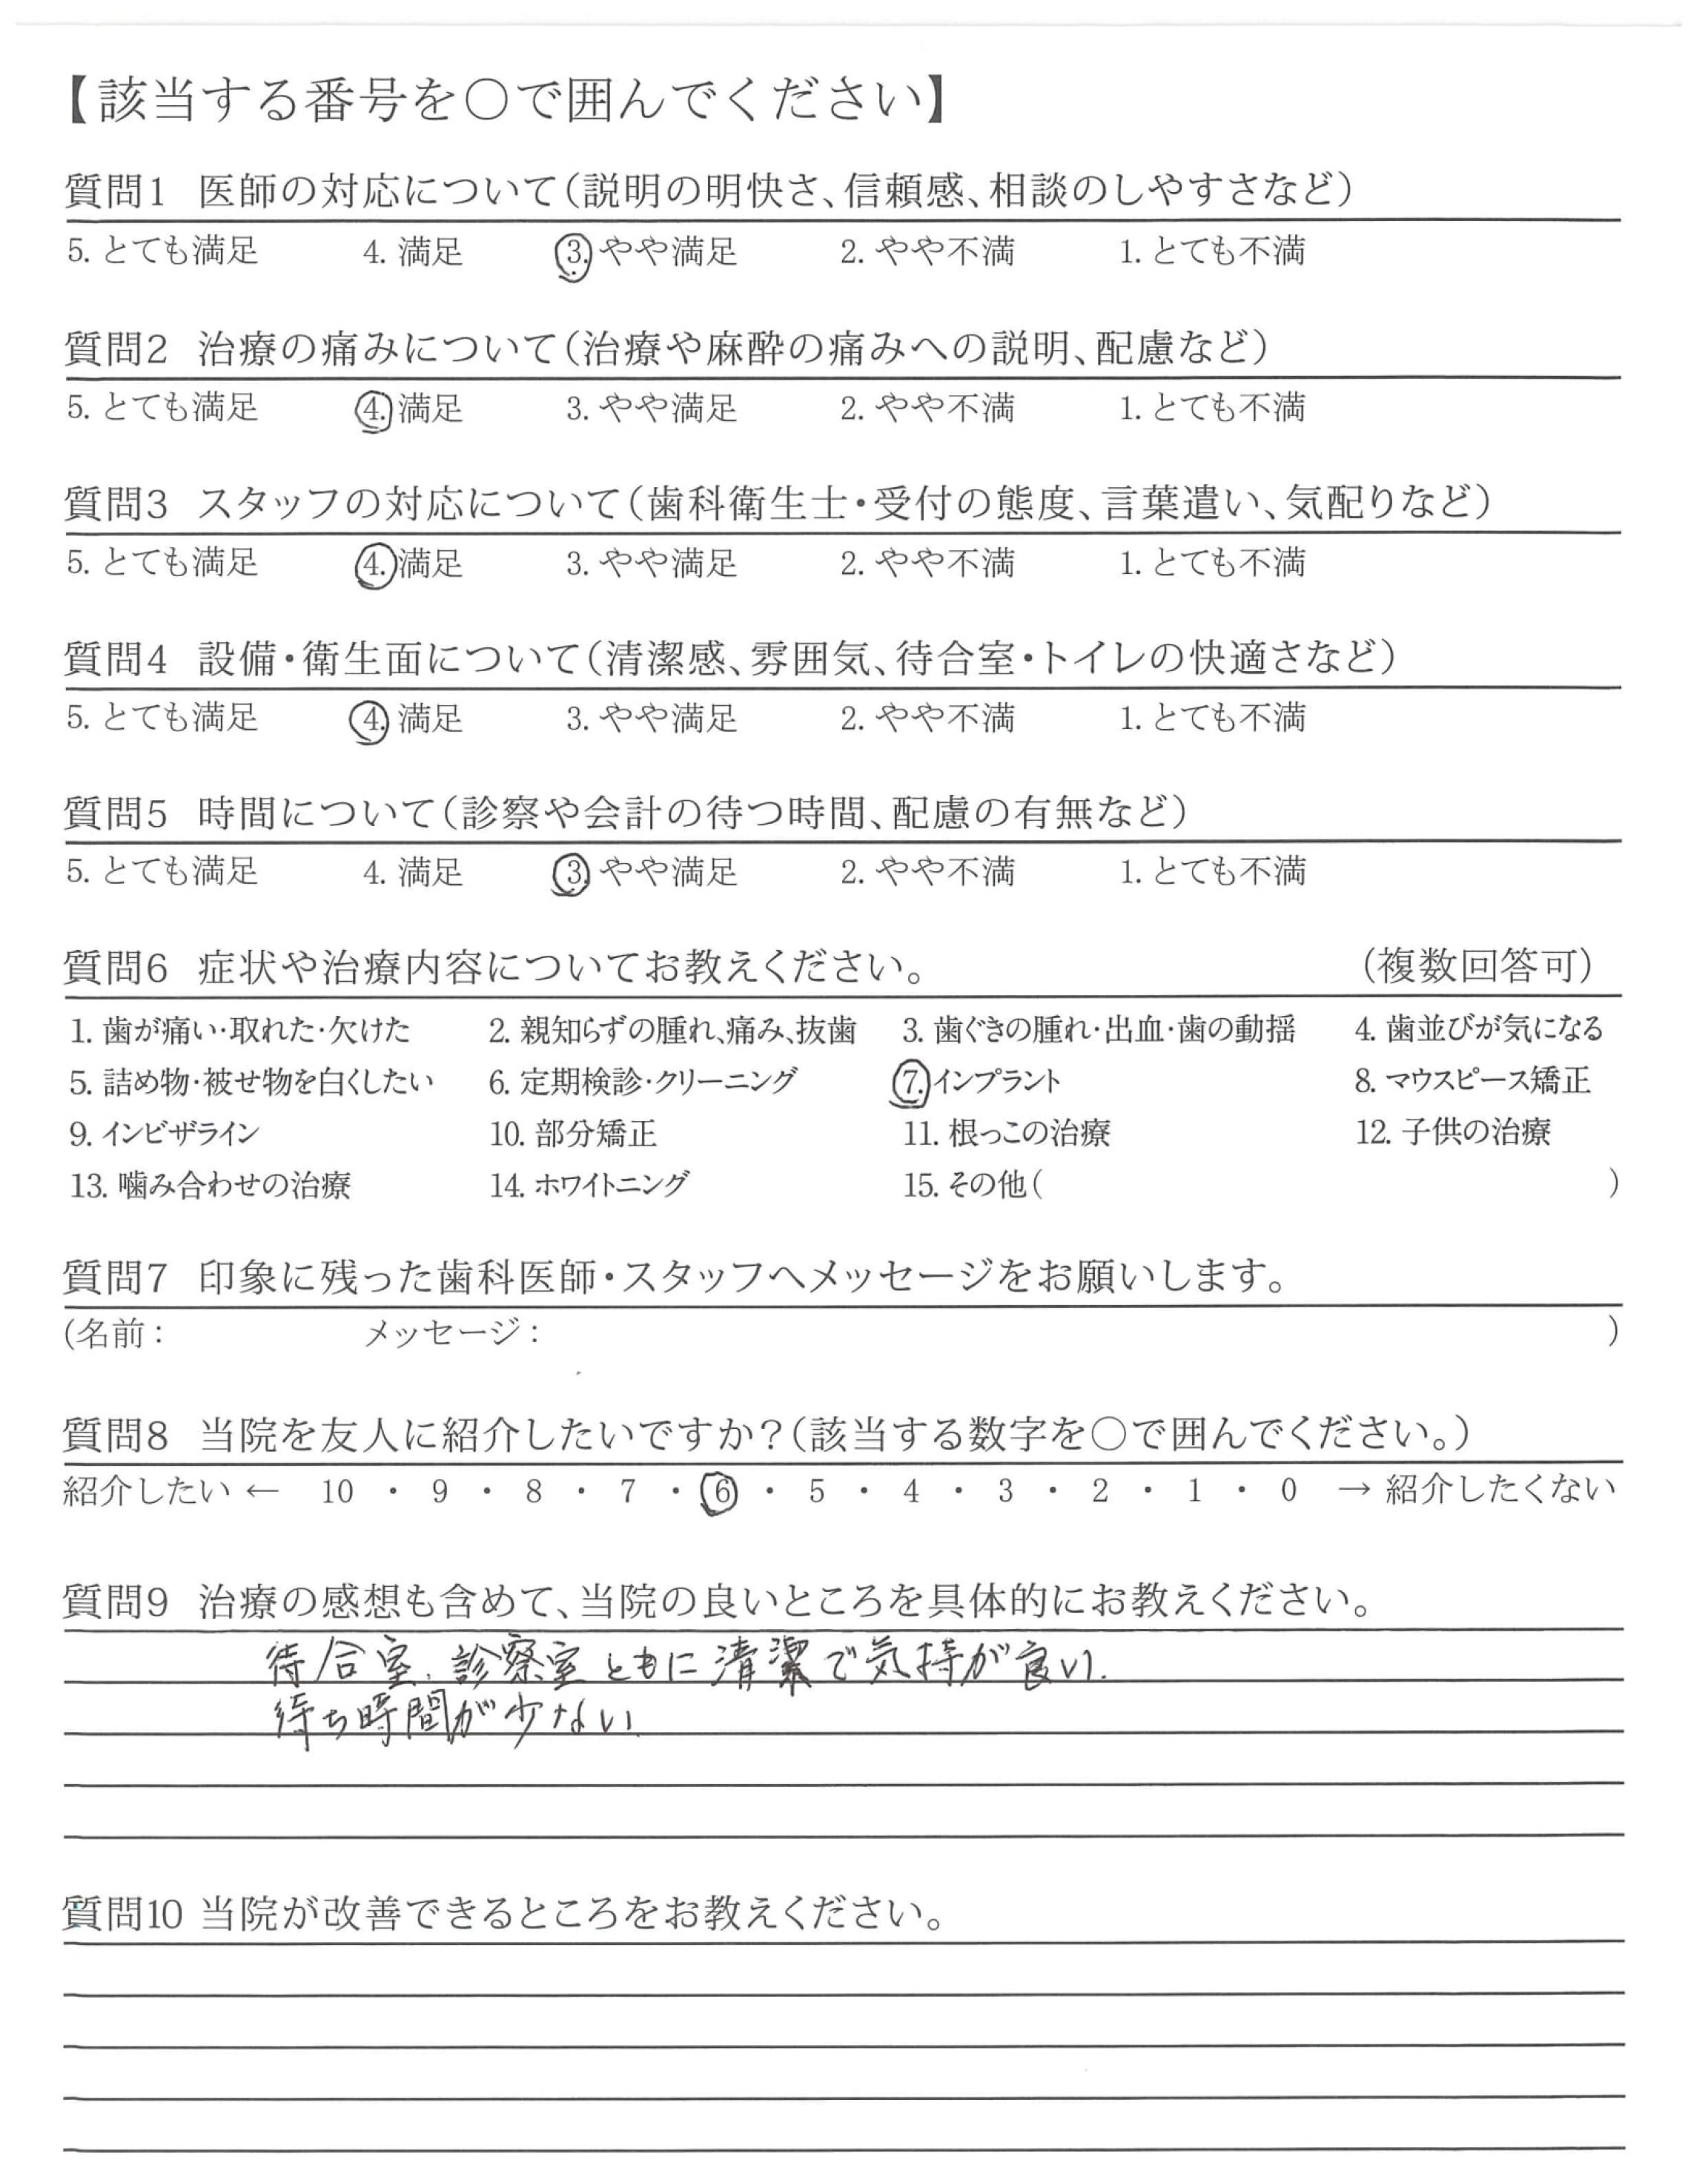 【該当する番号を○で囲んでください】
質問1 医師の対応について(説明の明快さ、信頼感、相談のしやすさなど)
5. とても満足 4. 満足 3. やや満足 2. やや不満 1. とても不満
質問2 治療の痛みについて(治療や麻酔の痛みへの説明、配慮など)
5. とても満足 4. 満足 3. やや満足 2. やや不満 1. とても不満
質問3 スタッフの対応について(歯科衛生士・受付の態度、言葉遣い、気配りなど)
5. とても満足 4. 満足 3. やや満足 2. やや不満 1. とても不満
質問4 設備・衛生面について(清潔感、雰囲気、待合室・トイレの快適さなど)
5. とても満足 4. 満足 3. やや満足 2. やや不満 1. とても不満
質問5 時間について(診察や会計の待つ時間、配慮の有無など)
5. とても満足 4. 満足 3. やや満足 2. やや不満 1. とても不満
質問6 症状や治療内容についてお教えください。 (複数回答可)
1. 歯が痛い・取れた・欠けた 2. 親知らずの腫れ、痛み、抜歯 3. 歯ぐきの腫れ・出血・歯の動揺 4. 歯並びが気になる
5. 詰め物・被せ物を白くしたい 6. 定期検診・クリーニング 7. インプラント 8. マウスピース矯正
9. インビザライン 10. 部分矯正 11. 根っこの治療 12. 子供の治療
13. 噛み合わせの治療 14. ホワイトニング 15. その他( )
質問7 印象に残った歯科医師・スタッフへメッセージをお願いします。
(名前: メッセージ: )
質問8 当院を友人に紹介したいですか?(該当する数字を○で囲んでください。)
紹介したい ← 10 ・ 9 ・ 8 ・ 7 ・ 6 ・ 5 ・ 4 ・ 3 ・ 2 ・ 1 ・ 0 → 紹介したくない
質問9 治療の感想も含めて、当院の良いところを具体的にお教えください。
待合室、診察室ともに清潔で気持が良い.
待ち時間が少ない
質問10 当院が改善できるところをお教えください。